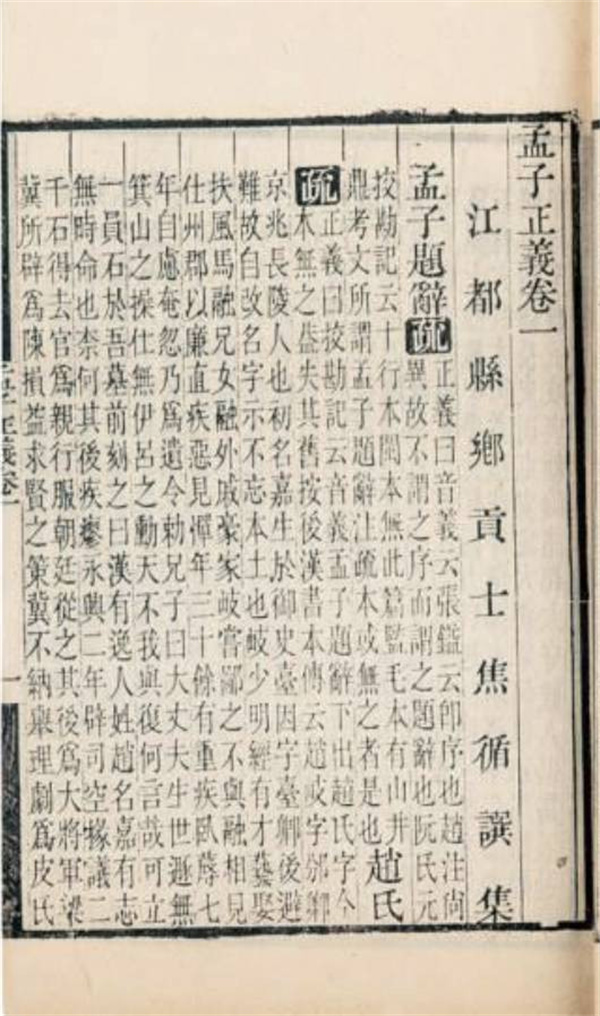 孟子正義卷一
江都縣鄉貢士焦循譔集
孟子題辭疏正義曰音義云張鎰云卽序也趙注尙
異故不謂之序而謂之題辭也阮氏元
挍勘記云十行本閩本無此篇監毛本有山井
鼎考文所謂孟子題辭注疏本或無之者是也趙氏
疏正義曰挍勘記云音義孟子題辭下出趙氏字今
本無之葢失其舊按後漢書本傳云趙岐字邠卿
京兆長陵人也初名嘉生於御史臺因字臺卿後避
難故自改名字示不忘本土也岐少明經有才藝娶
扶風馬融兄女融外戚豪家岐嘗鄙之不與融相見
仕州郡以廉直疾惡見憚年三十餘有重疾臥蓐七
年自慮奄忽乃爲遺令勅兄子曰大丈夫生世遯無
箕山之操仕無伊呂之勳天不我與復何言哉可立
一員石於吾墓前刻之曰漢有逸人姓趙名嘉有志
無時命也柰何其後疾瘳永興二年辟司空掾議二
千石得去官爲親行服朝廷從之其後爲大將軍梁
冀所辟爲陳損益求賢之策冀不納舉理劇爲皮氏
孟子正義卷一
一